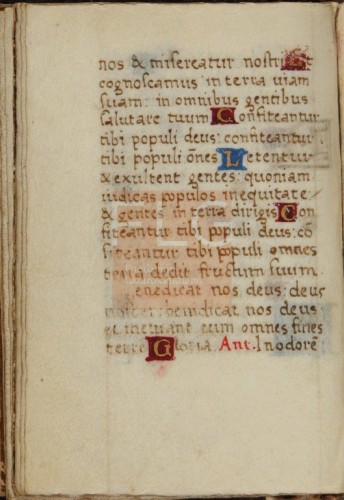 nos & misereatur nostri Et
cognoscamus in terra uiam
tuam: in omnibus gentibus
salutare tuum Confiteantur
tibi populi deus: confiteantur
tibi populi õnes Letentur
& exultent gentes: quoniam
iudicas populos in equitate
& gentes in terra dirigis Con
fiteantur tibi populi deus: cõ
fiteantur tibi populi omnes
terra dedit fructum suum.
enedicat nos deus: deus
noster: benidicat nos deus
et metuant eum omnes fines
terre Gloria. Ant. In odorẽ